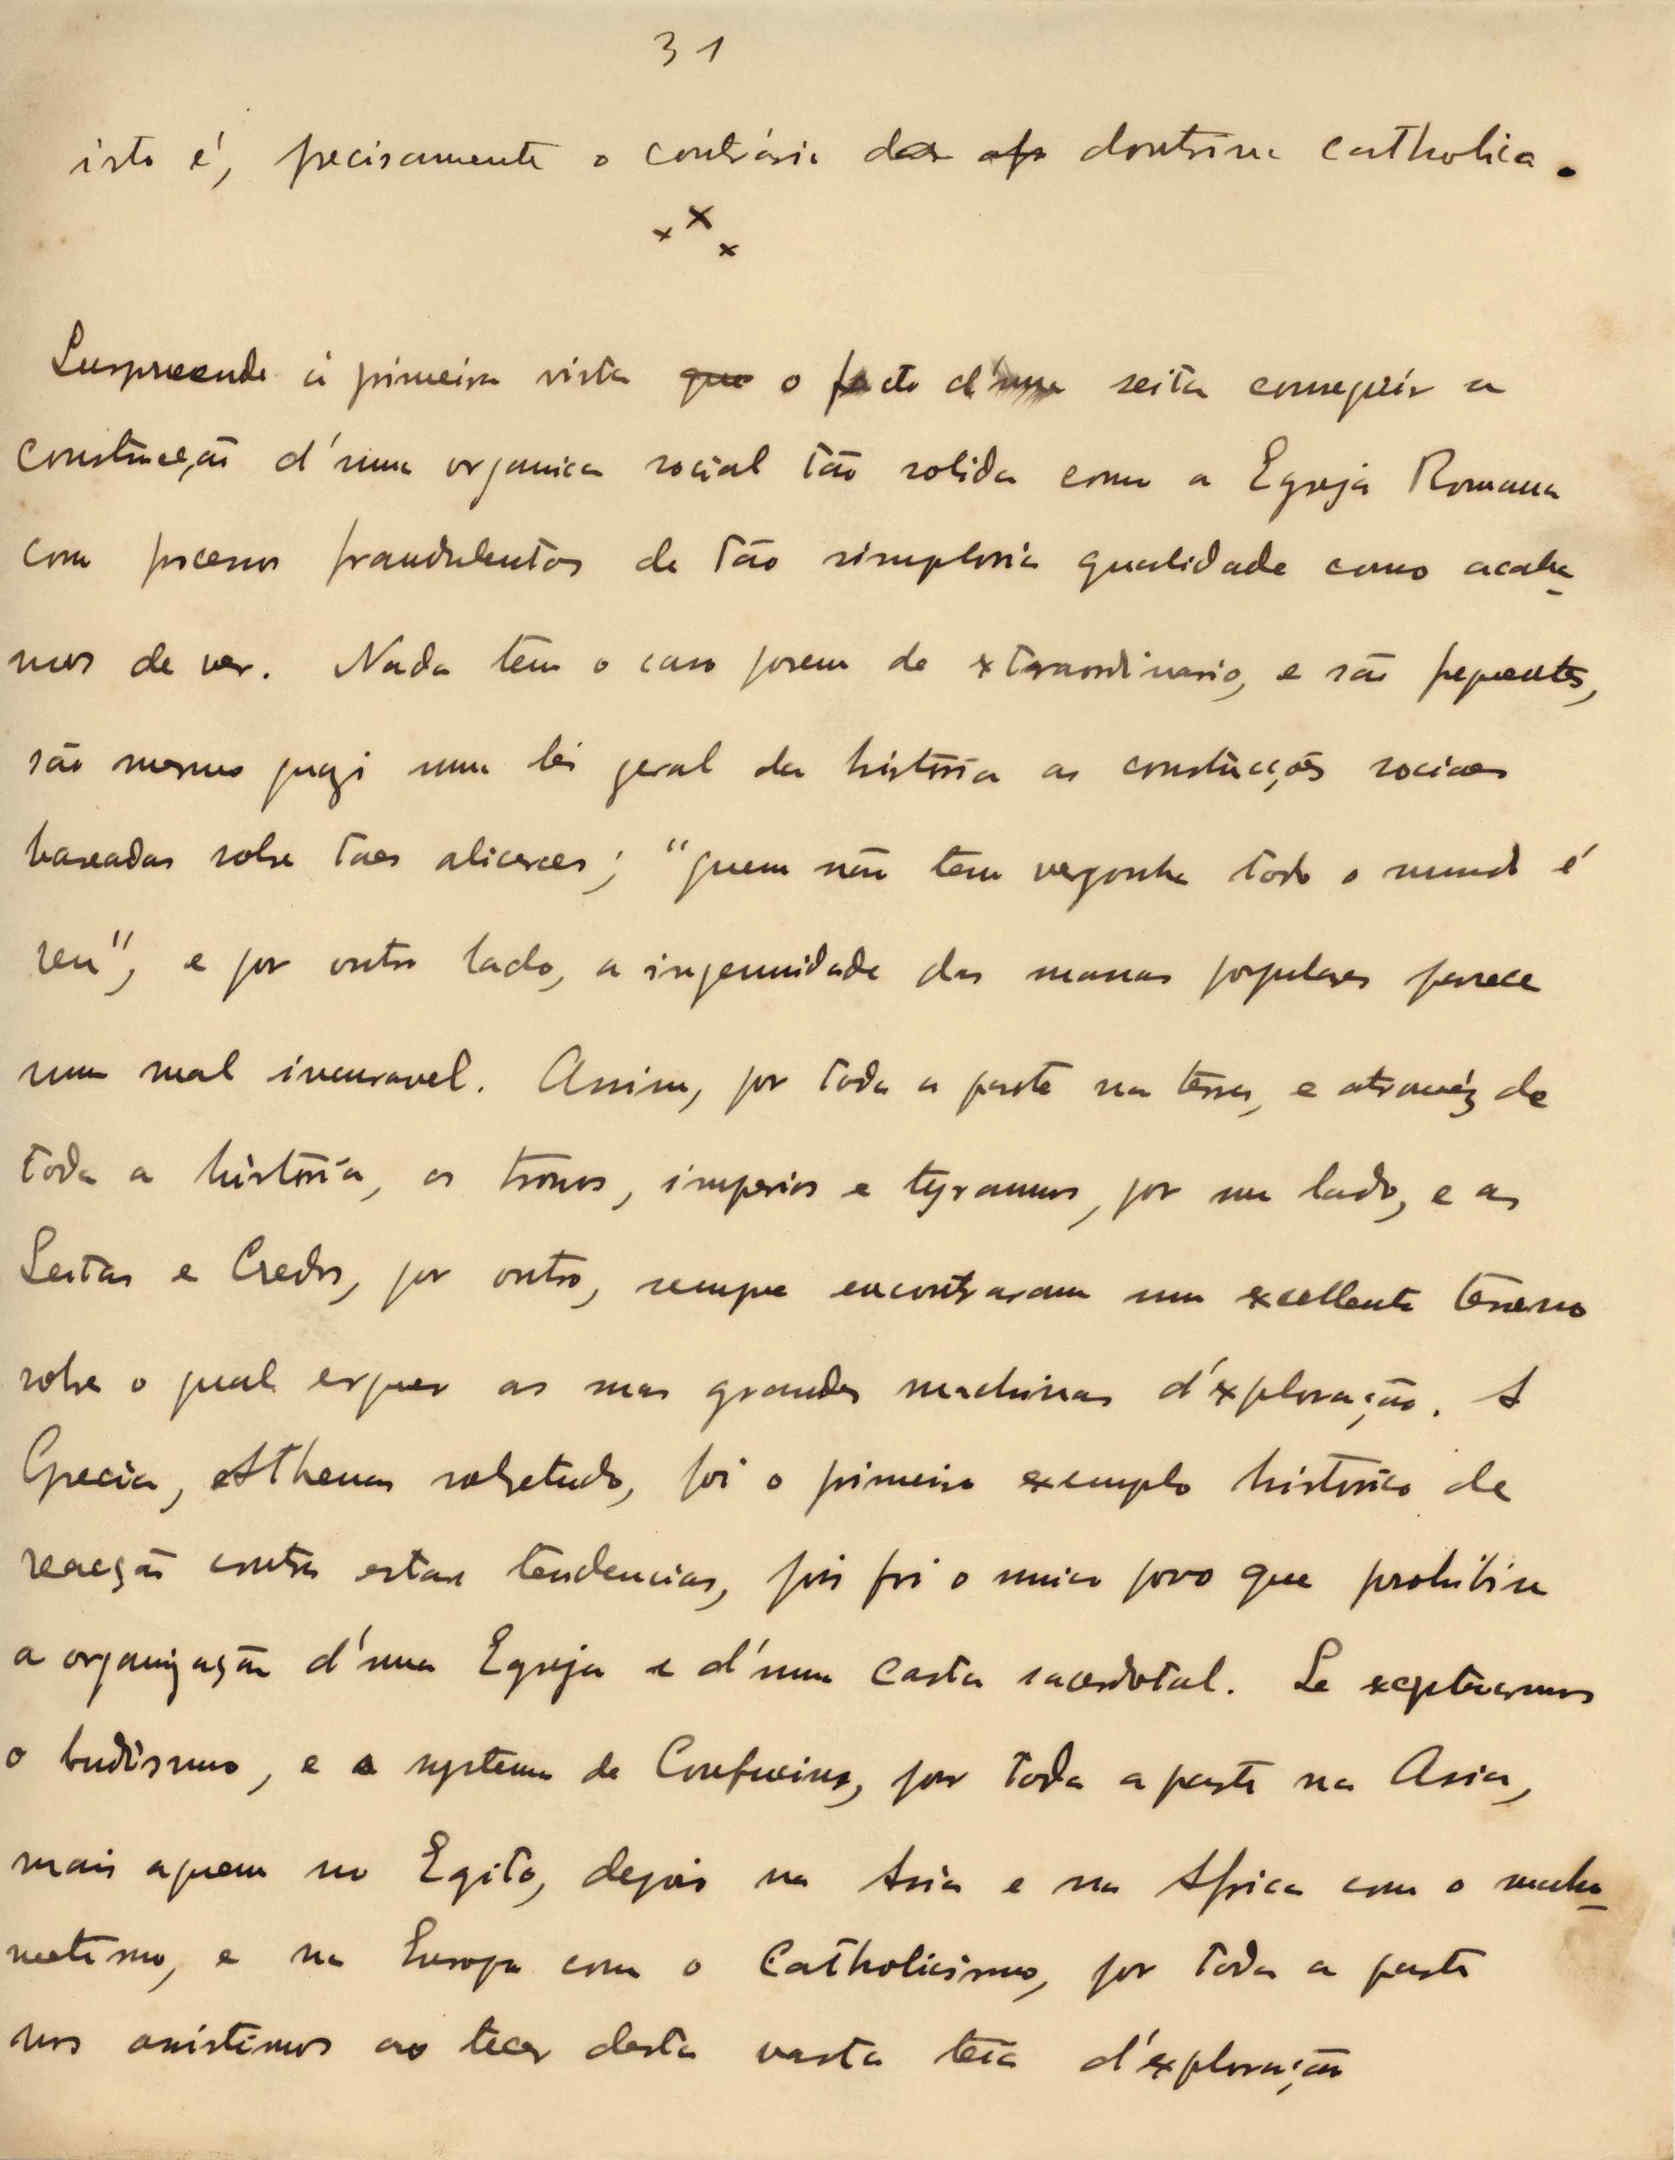 31
isto é, precisamente o contrário da doutrina catholica.
x x x
Surpreende á primeira vista que o facto d'uma seita conseguir a
construcção d'uma organica social tão solida como a Egreja Romana
com processos fraudulentos de tão simploria qualidade como acaba-
mos de ver. Nada tem o caso porem de extraordinario, e são frequentes,
são mesmo quazi uma lei geral da história as construcções sociaes
baseadas sobre taes alicerces; "quem não tem vergonha todo o mundo é
seu", e por outro lado, a ingenuidade das massas populares parece
um mal incuravel. Assim, por toda a parte na terra, e atravéz de
toda a história, os tronos, imperios e tyrannos, por um lado, e as
Seitas e Credos, por outro, sempre encontraram um excellente terreno
sobre o qual erguer as suas grandes machinas d'exploração. A
Grecia, Athenas sobretudo, foi o primeiro exemplo histórico de
reacção contra estas tendencias, pois foi o unico povo que prohibiu
a organização d'uma Egreja e d'uma casta sacerdotal. Se exceptuarmos
o budismo, e o systema de Confucius, por toda a parte na Asia,
mais aquem no Egito, depois na Asia e na Africa com o maho-
metismo, e na Europa com o Catholicismo, por toda a parte
nos assistimos ao tecer desta vasta teia d'exploração